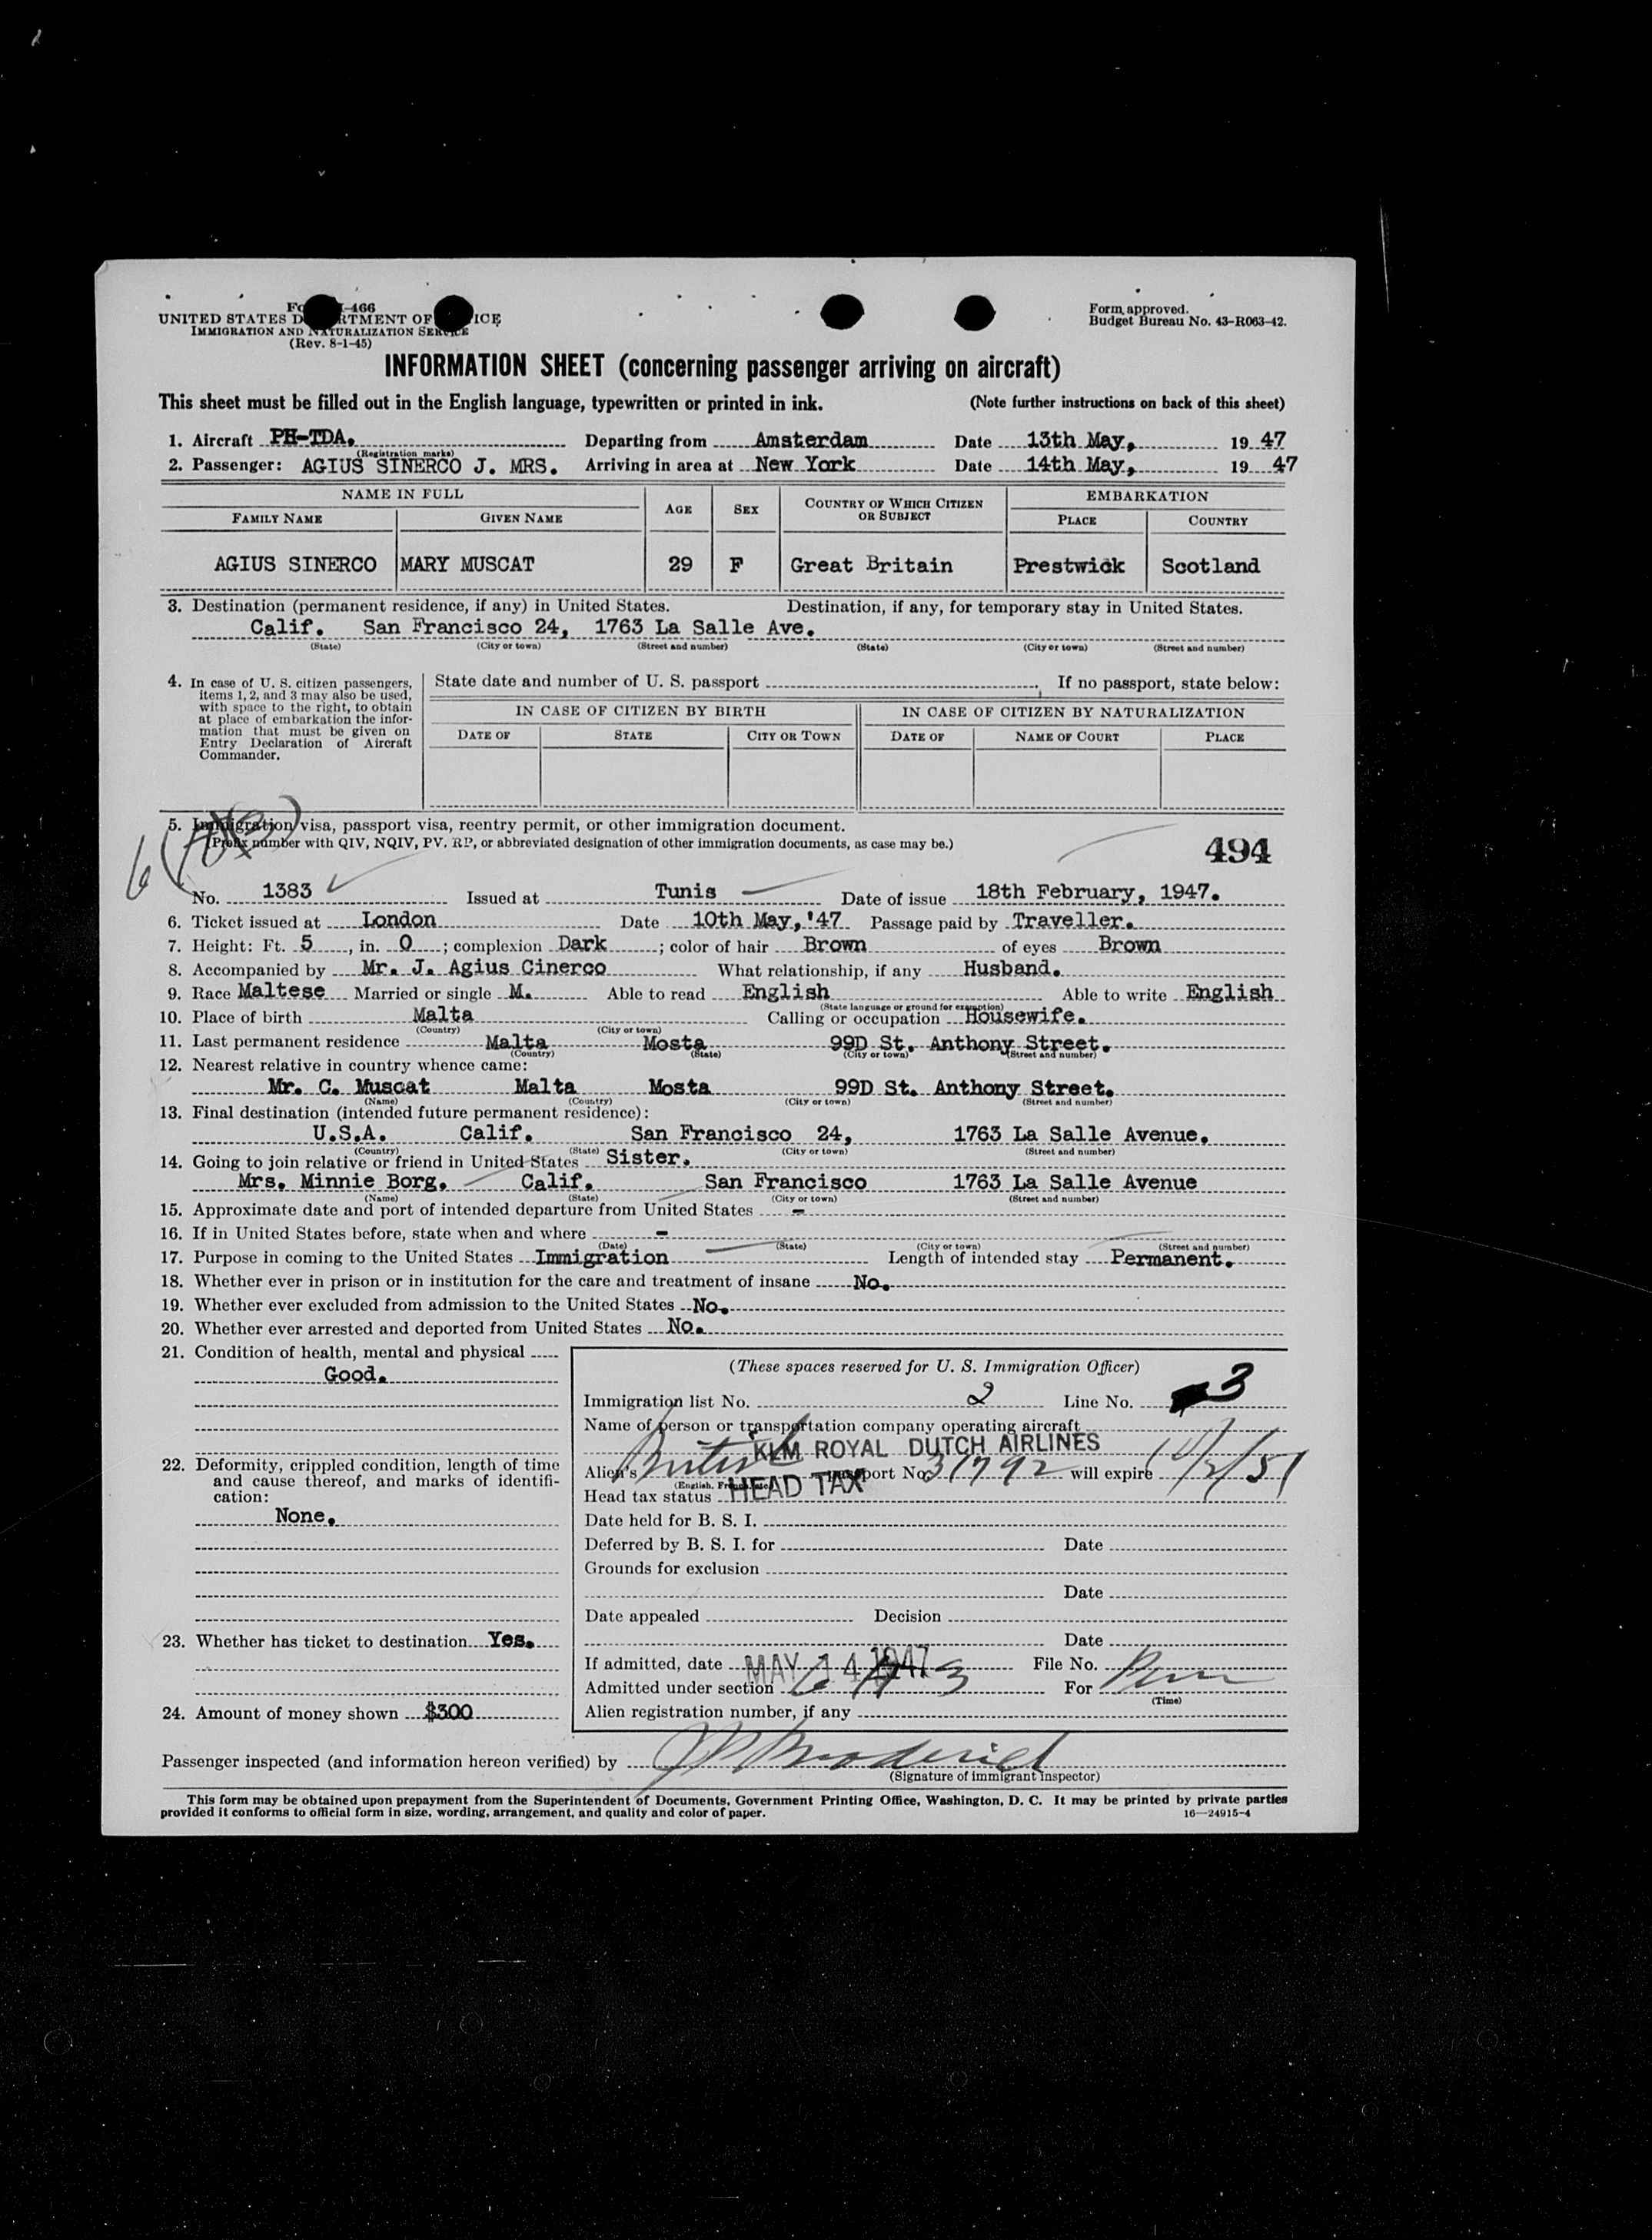 466
UNITED STATES
IMMIGRATION AND NATURALIZATION SERVICE
(Rev. 8-1-45)
Form approved.
Budget Bureau No. 43-R063-42.
INFORMATION SHEET (concerning passenger arriving on aircraft)
This sheet must be filled out in the English language, typewritten or printed in ink. (Note further instructions on back of this sheet)
1. Aircraft PH-TDA. Departing from Amsterdam Date 13th May, 19 47
(Registration marks)
2. Passenger: AGIUS SINERCO J. MRS. Arriving in area at New York Date 14th May, 19 47
NAME IN FULL AGE SEX COUNTRY OF WHICH CITIZEN OR SUBJECT EMBARKATION
FAMILY NAME GIVEN NAME PLACE COUNTRY
AGIUS SINERCO MARY MUSCAT 29 F Great Britain Prestwick Scotland
3. Destination (permanent residence, if any) in United States. Destination, if any, for temporary stay in United States.
Calif. San Francisco 24, 1763 La Salle Ave.
(State) (City or town) (Street and number) (State) (City or town) (Street and number)
4. In case of U. S. citizen passengers, items 1, 2, and 3 may also be used, with space to the right, to obtain at place of embarkation the information that must be given on Entry Declaration of Aircraft Commander.
State date and number of U. S. passport If no passport, state below:
IN CASE OF CITIZEN BY BIRTH IN CASE OF CITIZEN BY NATURALIZATION
DATE OF STATE CITY OR TOWN DATE OF NAME OF COURT PLACE
5. Immigration visa, passport visa, reentry permit, or other immigration document.
(Prefix number with QIV, NQIV, PV. RP, or abbreviated designation of other immigration documents, as case may be.)
494
No. 1383 Issued at Tunis Date of issue 18th February, 1947.
6. Ticket issued at London Date 10th May, '47 Passage paid by Traveller.
7. Height: Ft. 5, in. 0; complexion Dark; color of hair Brown of eyes Brown
8. Accompanied by Mr. J. Agius Cinerco What relationship, if any Husband.
9. Race Maltese Married or single M. Able to read English Able to write English
(State language or ground for exemption)
10. Place of birth Malta Calling or occupation Housewife.
(Country) (City or town)
11. Last permanent residence Malta Mosta 99D St. Anthony Street.
(Country) (State) (City or town) (Street and number)
12. Nearest relative in country whence came:
Mr. C. Muscat Malta Mosta 99D St. Anthony Street.
(Name) (Country) (City or town) (Street and number)
13. Final destination (intended future permanent residence):
U.S.A. Calif. San Francisco 24, 1763 La Salle Avenue.
(Country) (State) (City or town) (Street and number)
14. Going to join relative or friend in United States Sister.
Mrs. Minnie Borg. Calif. San Francisco 1763 La Salle Avenue
(Name) (State) (City or town) (Street and number)
15. Approximate date and port of intended departure from United States -
16. If in United States before, state when and where -
(Date) (State) (City or town) (Street and number)
17. Purpose in coming to the United States Immigration Length of intended stay Permanent.
18. Whether ever in prison or in institution for the care and treatment of insane No.
19. Whether ever excluded from admission to the United States No.
20. Whether ever arrested and deported from United States No.
21. Condition of health, mental and physical
Good.
22. Deformity, crippled condition, length of time and cause thereof, and marks of identification:
None.
23. Whether has ticket to destination Yes.
24. Amount of money shown $300
(These spaces reserved for U. S. Immigration Officer)
Immigration list No. 2 Line No. 3
Name of person or transportation company operating aircraft
KLM ROYAL DUTCH AIRLINES
Alien's British passport No. 31792 will expire 14/2/51
Head tax status HEAD TAX
Date held for B. S. I.
Deferred by B. S. I. for Date
Grounds for exclusion
Date
Date appealed Decision
Date
If admitted, date MAY 14 1947 File No.
Admitted under section 6 A 3 For Perm
(Time)
Alien registration number, if any
Passenger inspected (and information hereon verified) by
(Signature of immigrant inspector)
This form may be obtained upon prepayment from the Superintendent of Documents, Government Printing Office, Washington, D. C. It may be printed by private parties
provided it conforms to official form in size, wording, arrangement, and quality and color of paper. 16—24915-4